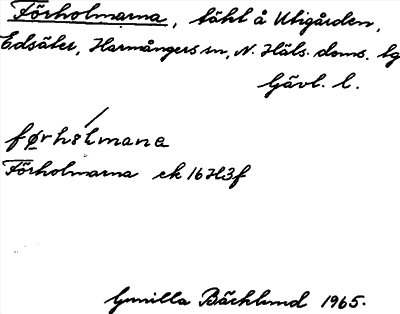 Förholmarna, täkt å Utigården,
Edsäter, Harmångers sn, N. Häls. doms. hg
Gävl. l.
førhølmana
Förholmarna ek 16H3f
Gunilla Bäcklund 1965.